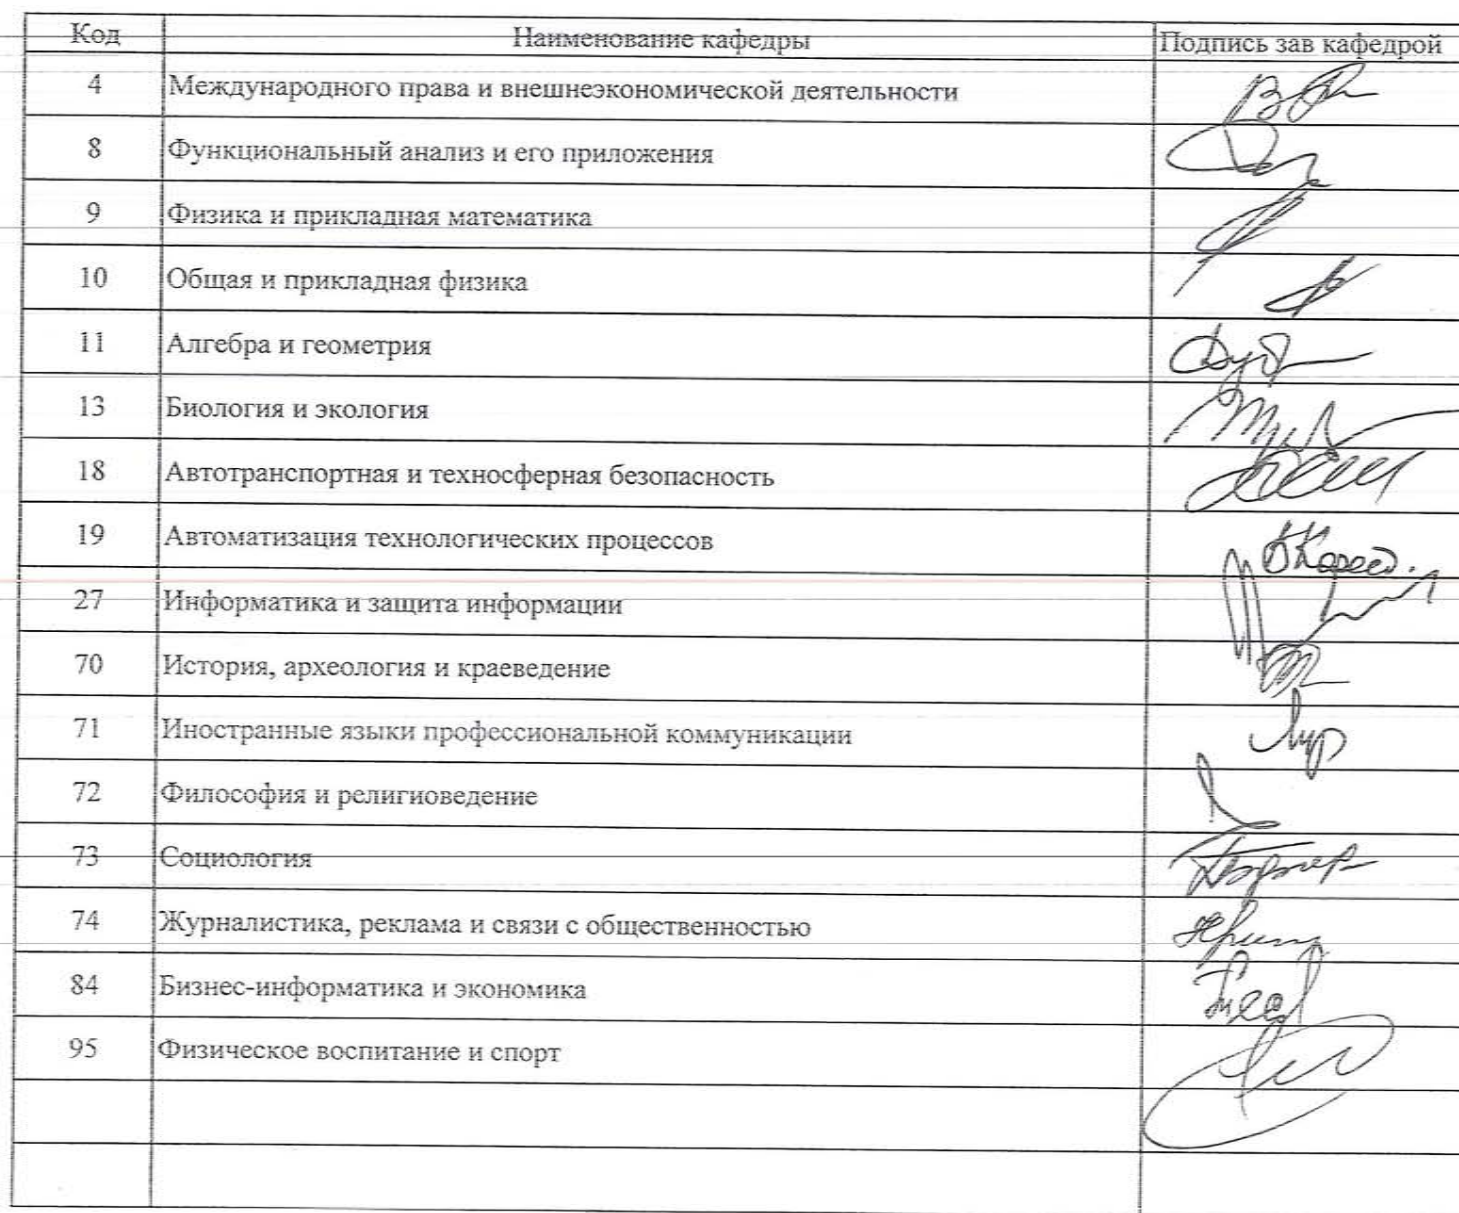 Код Наименование кафедры Подпись зав кафедрой
4 Международного права и внешнеэкономической деятельности
8 Функциональный анализ и его приложения
9 Физика и прикладная математика
10 Общая и прикладная физика
11 Алгебра и геометрия
13 Биология и экология
18 Автотранспортная и техносферная безопасность
19 Автоматизация технологических процессов
27 Информатика и защита информации
70 История, археология и краеведение
71 Иностранные языки профессиональной коммуникации
72 Философия и религиоведение
73 Социология
74 Журналистика, реклама и связи с общественностью
84 Бизнес-информатика и экономика
95 Физическое воспитание и спорт